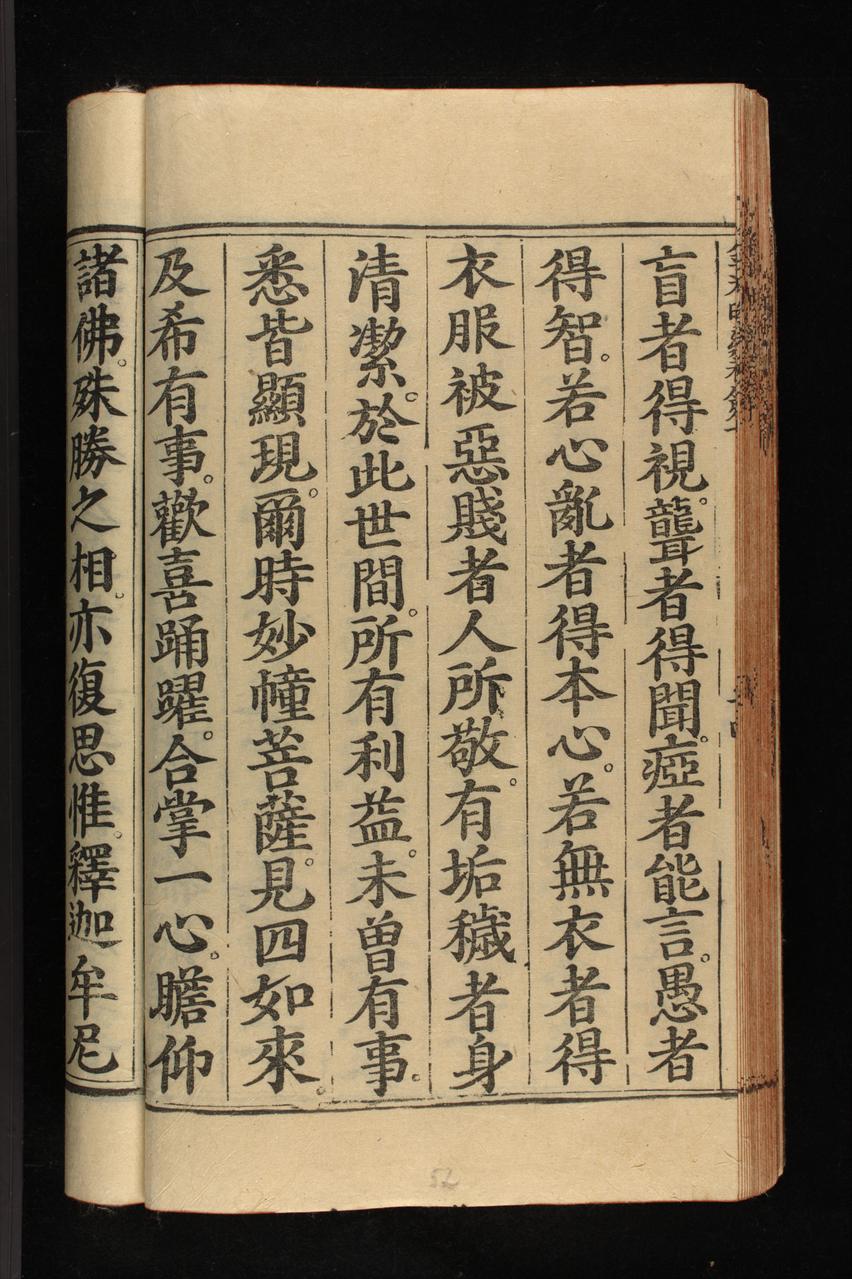 盲者得視。聾者得聞。瘂者能言。愚者
得智。若心亂者得本心。若無衣者得
衣服被惡賤者人所敬。有垢穢者身
清潔。於此世間。所有利益。未曾有事。
悉皆顯現。爾時妙幢菩薩。見四如來。
及希有事。歡喜踊躍。合掌一心。瞻仰
諸佛。殊勝之相。亦復思惟。釋迦牟尼
52